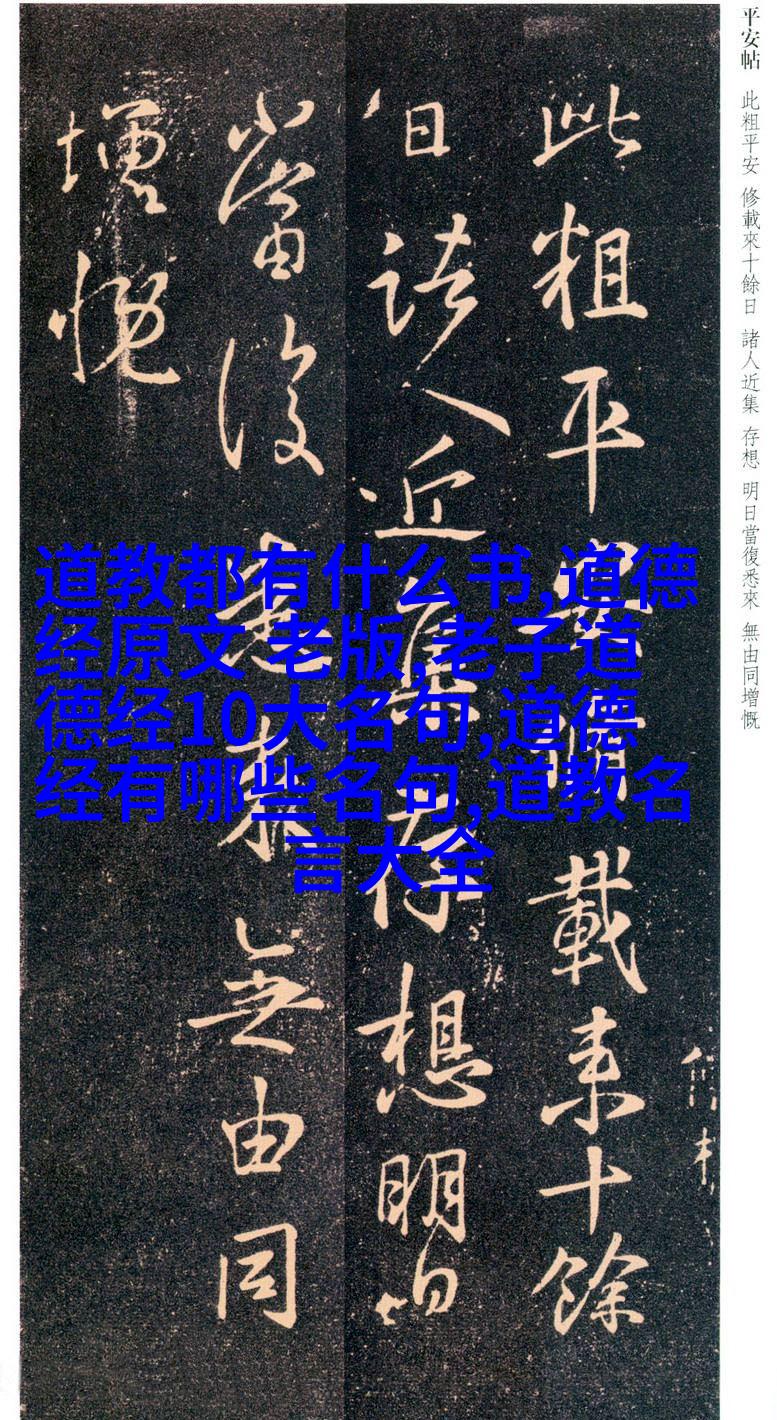 平安帖 此粗平安 修載來十餘日 諸人近集 存想 明日當復悉來 無由同增慨
此粗平安脩載来十餘
日諸人近集存想明日
當復悉來無由同
增慨
道教都有什么书,道德
经原文 老版,老子道
德经10大名句,道德
经有哪些名句,道教名
言大全